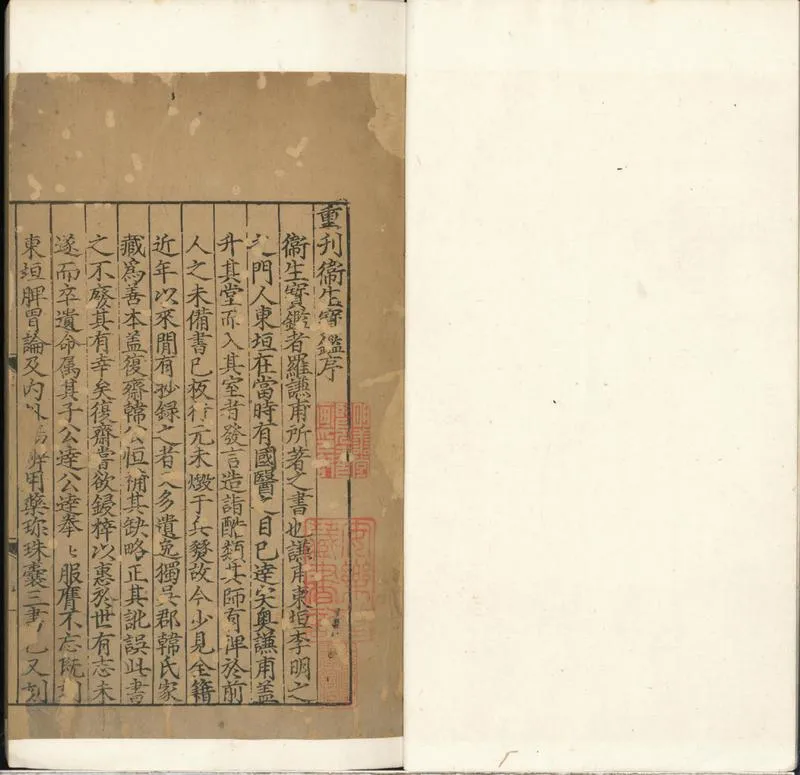 重刊衛生寶鑑序
衛生寶鑑者羅謙甫所著之書也謙甫東垣李明之
門人東垣在當時有國醫之目已達突奥謙甫盖
升其堂而入其室者發言造詣酷類其師有裨於前
人之未備書已板行元末燬于兵燹故今少見全籍
近年以來間有抄録之者又多遺逸獨吳郡韓氏家
藏爲善本盖復齋韓公恒補其缺略正其訛誤此書
之不廢其有幸矣復齋嘗欲鋟梓以惠於世有志未
遂而卒遺命属其子公達公達奉以服膺不忘既刻
東垣脾胃論及内外傷辯用藥珍珠囊三書已又刻